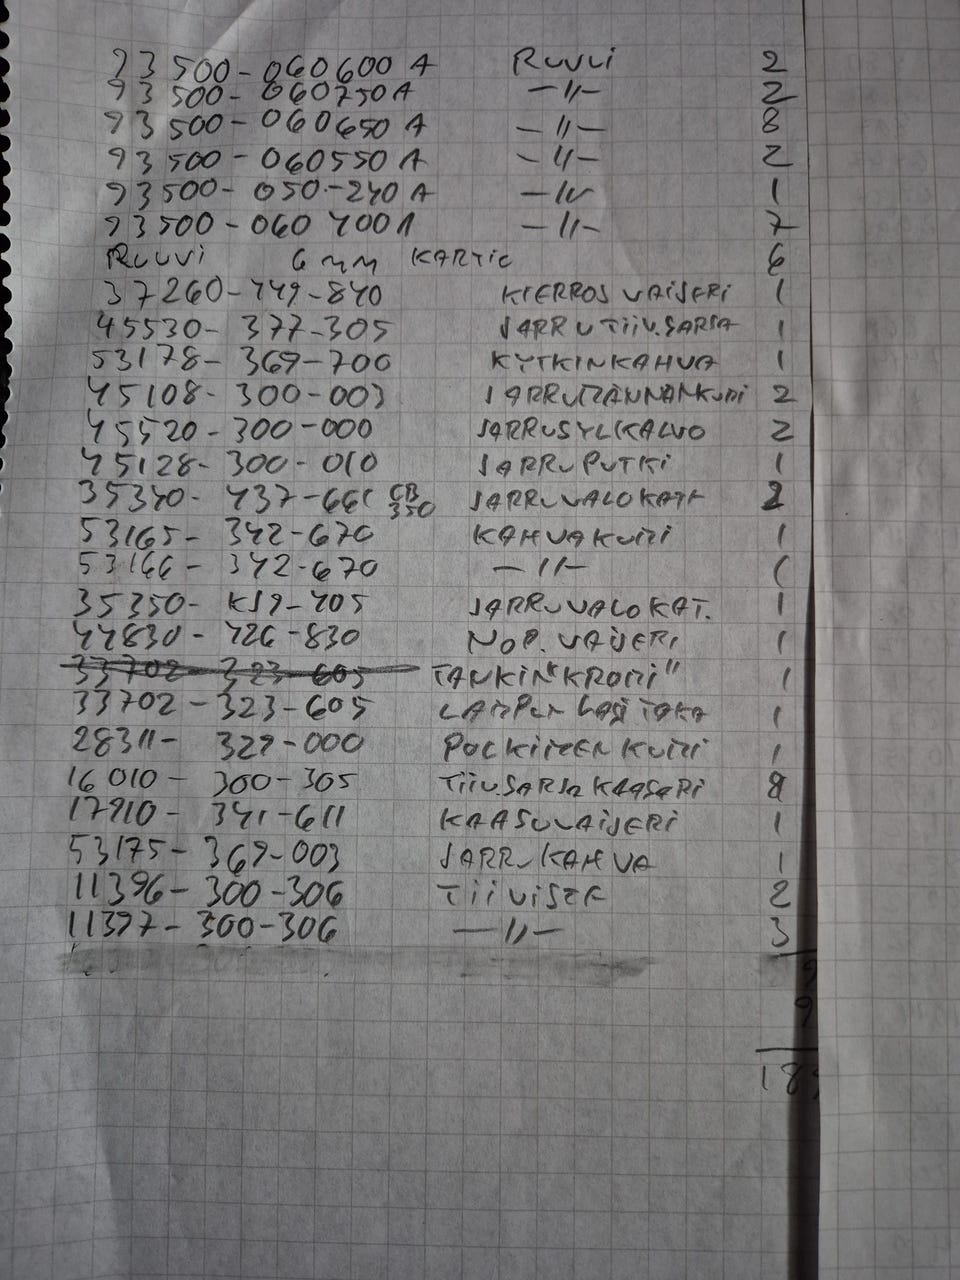 93500-060600 A Ruuvi 2
93500-060750A -"- 2
93500-060650 A -"- 8
93500-060550 A -"- 2
93500-050-240 A -"- 1
93500-060 400A -"- 7
Ruuvi 6 mm KARTIO 6
37260-449-840 KIERROS VAIJERI 1
45530-377-305 JARRUTIIV.SARJA 1
53178-369-700 KYTKINKAHVA 1
45108-300-003 JARRUMÄNNÄNKUMI 2
45520-300-000 JARRUSYLKALVO 2
45128-300-010 JARRUPUTKI 1
35340-437-661 CB 350 JARRUVALOKAT 2
53165-342-670 KAHVAKUMI 1
53166-342-670 -"- 1
35350-KJ9-405 JARRUVALOKAT. 1
44830-426-830 NOP. VAIJERI 1
33702-323-605 TANKIN "KROMI" 1
33702-323-605 LAMPUN LASI TAKA 1
28311-329-000 POLKIMEN KUMI 1
16010-300-305 TIIV.SARJA KAASARI
17910-341-611 KAASUVAIJERI 1
53175-369-003 JARRUKAHVA 1
11396-300-306 TIIVISTE 2
11397-300-306 -"- 3